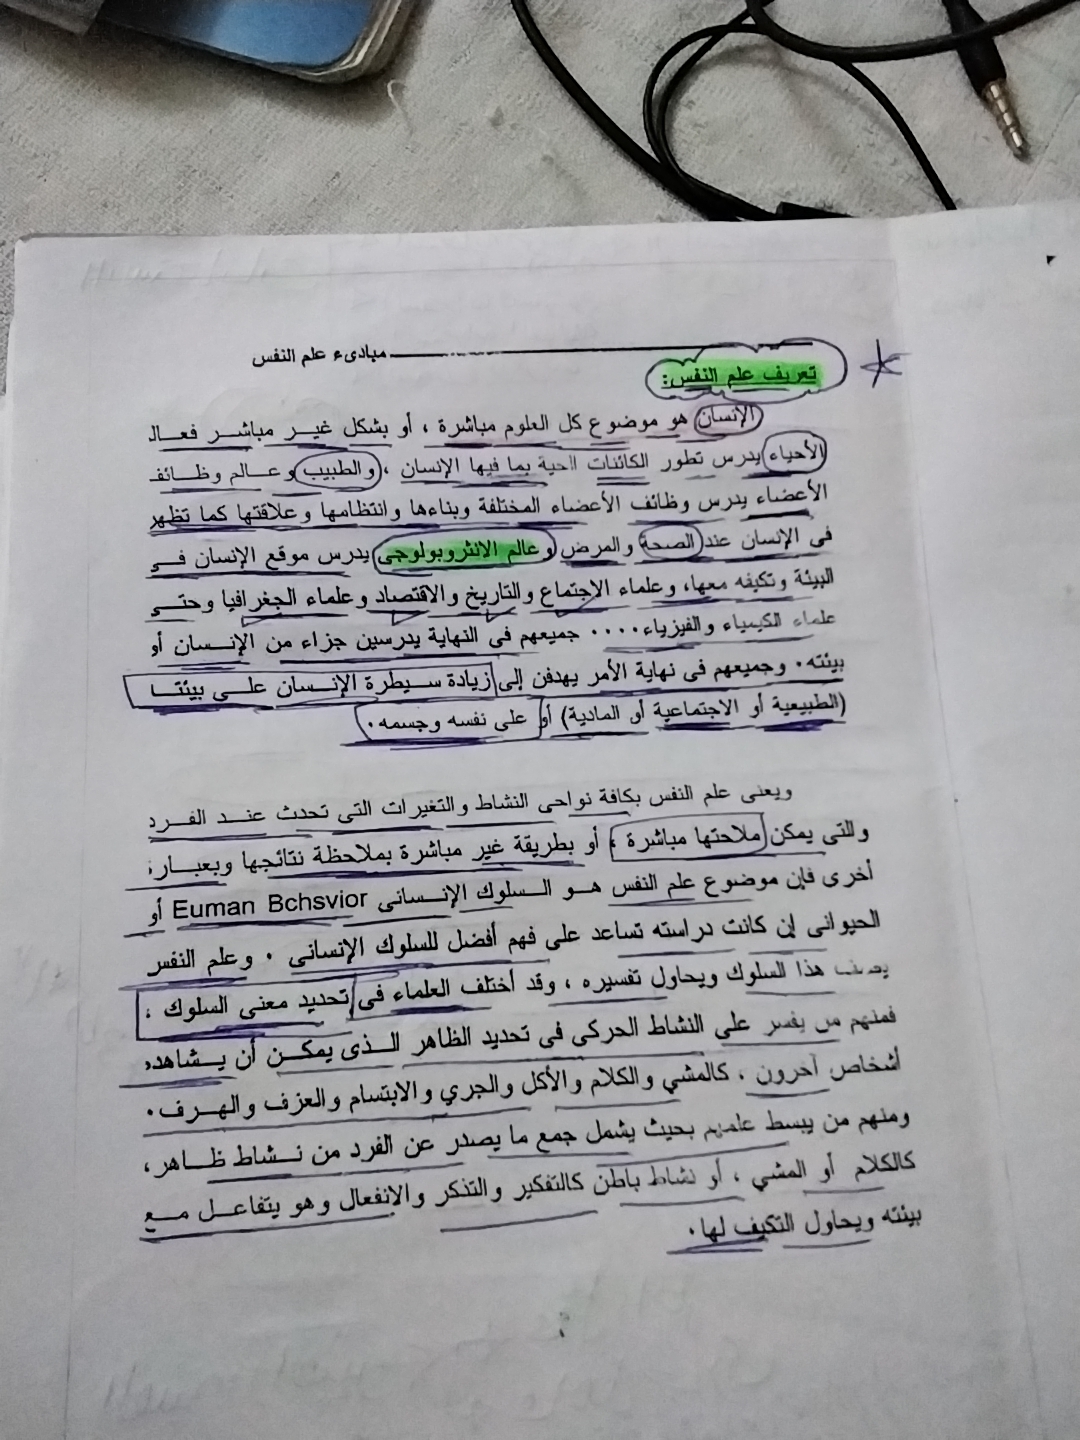 مبادىء علم النفس
تعريف علم النفس:
الإنسان هو موضوع كل العلوم مباشرة ، أو بشكل غير مباشر فعالد
الأحياء يدرس تطور الكائنات الحية بما فيها الإنسان ، والطبيب و عالم وظائف
الأعضاء يدرس وظائف الأعضاء المختلفة وبناءها وانتظامها وعلاقتها كما تظهر
فى الإنسان عند الصحة والمرض و عالم الانثروبولوجى يدرس موقع الإنسان فى
البيئة وتكيفه معها، وعلماء الاجتماع والتاريخ والاقتصاد وعلماء الجغرافيا وحتى
علماء الكيمياء والفيزياء.... جميعهم فى النهاية يدرسين جزاء من الإنسان أو
بيئته. وجميعهم فى نهاية الأمر يهدفن إلى زيادة سيطرة الإنسان على بيئتـا
(الطبيعية أو الاجتماعية أو المادية) أو على نفسه وجسمه.
ويعنى علم النفس بكافة نواحى النشاط والتغيرات التى تحدث عند الفرد
وللتى يمكن ملاحتها مباشرة ، أو بطريقة غير مباشرة بملاحظة نتائجها وبعبار:
أخرى فإن موضوع علم النفس هو السلوك الإنسانى Euman Bchsvior أو
الحيوانى لن كانت دراسته تساعد على فهم أفضل للسلوك الإنسانى . وعلم النفس
يصف هذا السلوك ويحاول تفسيره ، وقد أختلف العلماء فى تحديد معنى السلوك ،
فمنهم من يقسر على النشاط الحركى فى تحديد الظاهر الذى يمكن أن يشاهده
أشخاص أخرون ، كالمشي والكلام والأكل والجري والابتسام والعزف والهرف.
ومنهم من يبسط علمهم بحيث يشمل جمع ما يصدر عن الفرد من نشاط ظاهر،
كالكلام أو المشي ، أو نشاط باطن كالتفكير والتذكر والانفعال وهو يتفاعل مع
بيئته ويحاول التكيف لها.